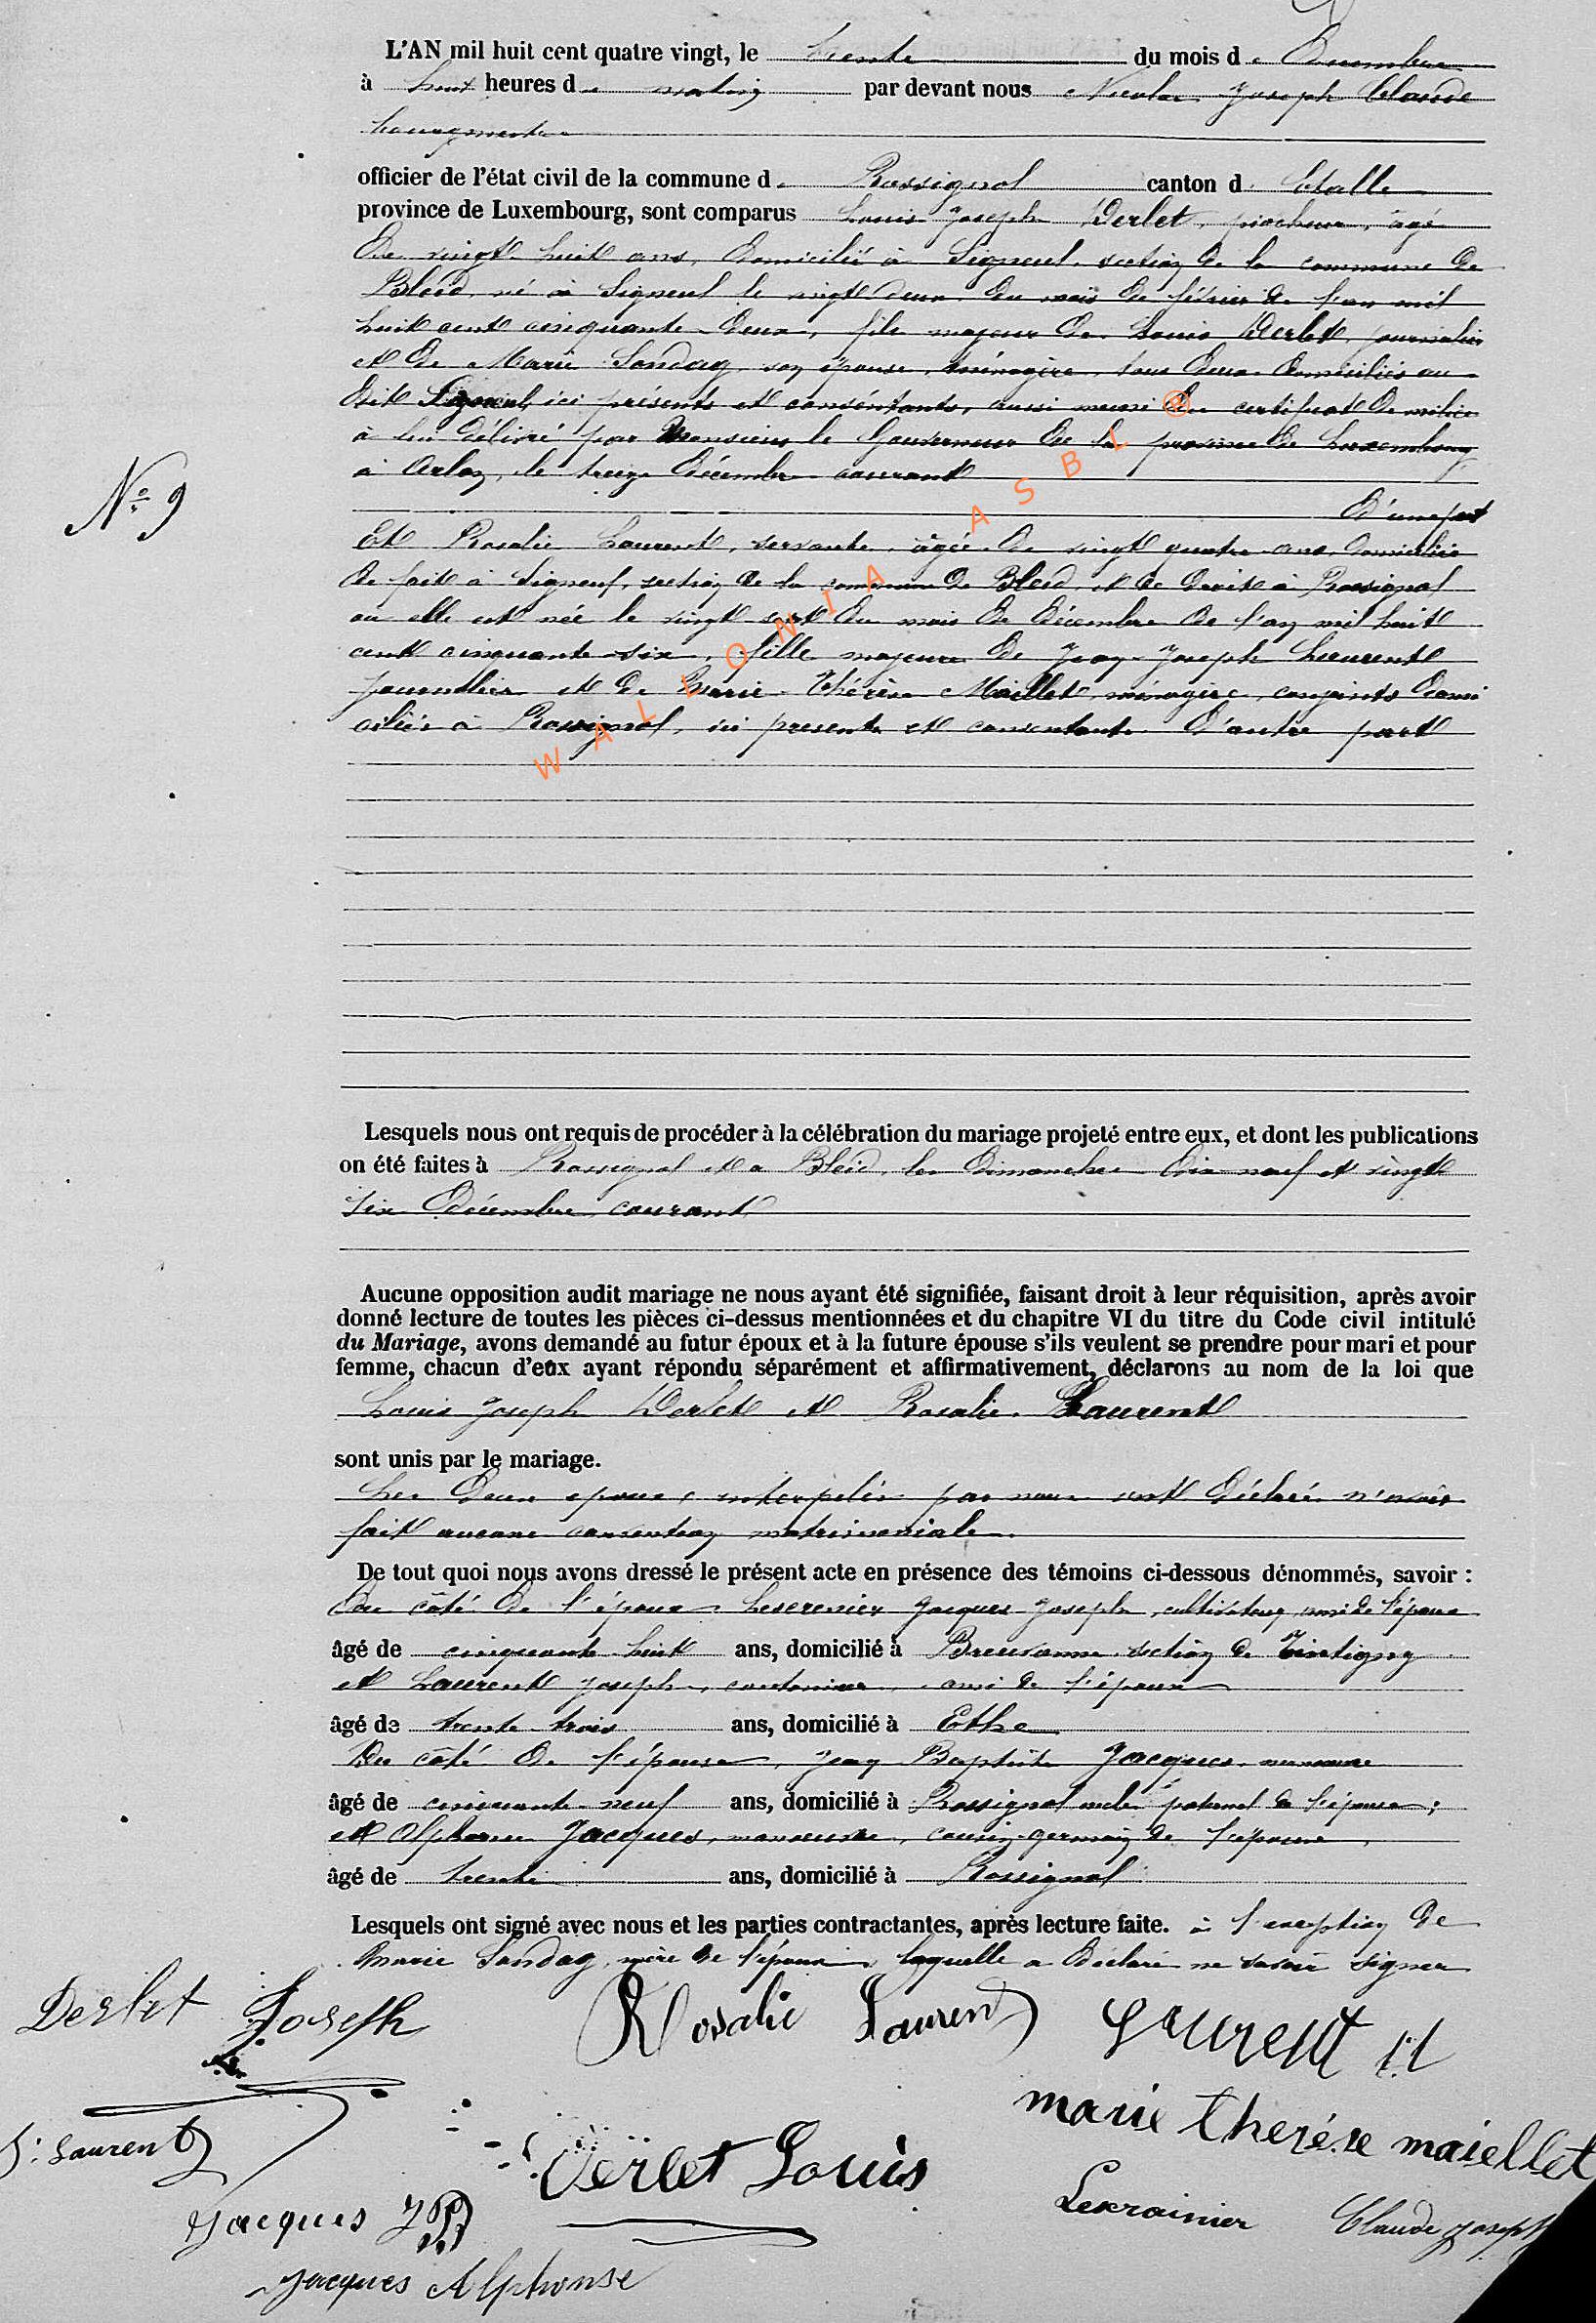 L'AN mil huit cent quatre vingt, le trente du mois de Décembre
à huit heures du matin par devant nous Nicolas Joseph Claude
bourgmestre
officier de l'état civil de la commune de Rossignol canton d' Etalle
province de Luxembourg, sont comparus Louis Joseph Derlet, piocheur, âgé
de vingt huit ans, domicilié à Signeul, section de la commune de
Bleid, né à Signeul le vingt deux du mois de février de l'an mil
huit cent cinquante-deux, fils majeur de Louis Derlet, journalier
et de Marie Sondag, son épouse, ménagère, tous deux domiciliés au
dit Signeul, ici présents et consentants, aussi muni du certificat de milice
à lui délivré par Monsieur le Gouverneur de la province de Luxembourg
à Arlon, le treize décembre courant
N° 9
D'une part
Et Rosalie Laurent, servante, âgée de vingt quatre ans, domiciliée
de fait à Signeul, section de la commune de Bleid, et de droit à Rossignol
où elle est née le vingt sept du mois de décembre de l'an mil huit
cent cinquante-six, fille majeure de Jean-Joseph Laurent
journalier et de Marie-Thérèse Maillet, ménagère, conjoints domi
ciliés à Rossignol, ici présents et consentants. D'autre part
WALLONIA ASBL @
Lesquels nous ont requis de procéder à la célébration du mariage projeté entre eux, et dont les publications
on été faites à Rossignol et a Bleid, les Dimanches dix neuf et vingt
six Décembre courant
Aucune opposition audit mariage ne nous ayant été signifiée, faisant droit à leur réquisition, après avoir
donné lecture de toutes les pièces ci-dessus mentionnées et du chapitre VI du titre du Code civil intitulé
du Mariage, avons demandé au futur époux et à la future épouse s'ils veulent se prendre pour mari et pour
femme, chacun d'eux ayant répondu séparément et affirmativement, déclarons au nom de la loi que
Louis Joseph Derlet et Rosalie Laurent
sont unis par le mariage.
Les deux époux, interpelés par nous ont déclaré n'avoir
fait aucune convention matrimoniale.
De tout quoi nous avons dressé le présent acte en présence des témoins ci-dessous dénommés, savoir :
Du côté de l'époux Lescrenier Jacques-Joseph, cultivateur, ami de l'époux
âgé de cinquante-huit ans, domicilié à Breuvanne, section de Tintigny
et Laurent Joseph, cantonnier, ami de l'époux
âgé de trente-trois ans, domicilié à Ethe
Du côté de l'épouse, Jean Baptiste Jacques, manœuvre
âgé de cinquante-neuf ans, domicilié à Rossignol oncle paternel de l'épouse;
et Alphonse Jacques, manœuvre, cousin-germain de l'épouse,
âgé de trente ans, domicilié à Rossignol
Lesquels ont signé avec nous et les parties contractantes, après lecture faite. à l'exception de
Marie Sondag, mère de l'époux, laquelle a déclaré ne savoir signer
Derlet Joseph Rosalie Laurent Laurent JJ
marie thérése maiellet
J: Laurent
Derlet Louis
Lescrainier Claude Joseph
Jacques JB
Jacques Alphonse